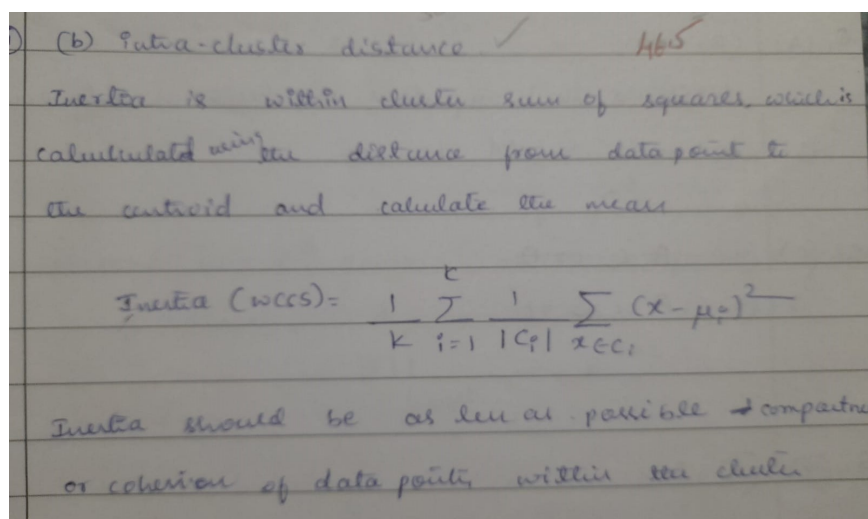 (b) intra-cluster distance ✓ 46.5
Inertia is within cluster sum of squares, which is
calculculated using the distance from data point to
the centroid and calculate the mean
Inertia (WCCS) = 1/K Σ_{i=1}^{K} 1/|Ci| Σ_{x∈Ci} (x - μi)²
Inertia should be as less as possible → compactne
or cohesion of data points within the cluster